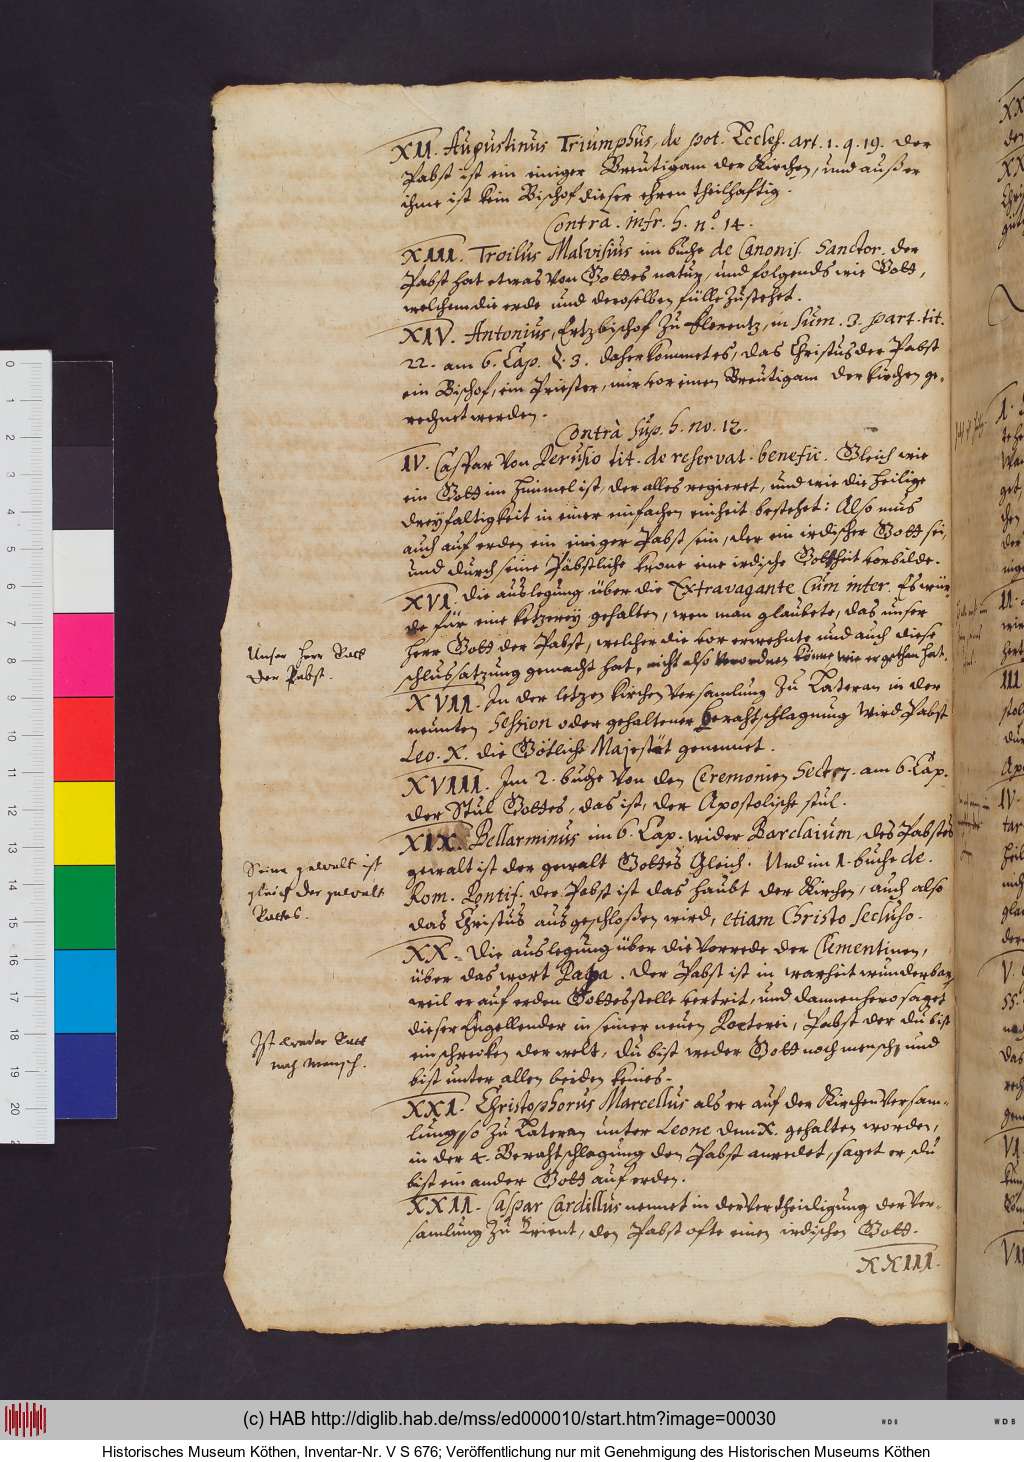 XII. Augustinus Triumphus, de pot. Eccles. art. 1. q. 19. Der
Pabst ist ein einiger Breutigam der Kirchen, und außer
ihme ist kein Bischof dieser ehren theilhaftig.
Contrà. infr. h. n.° 14.
XIII. Troilus Malvisius im buche de Canonis. Sanctor. der
Pabst hat etwas von Gottes natur, und folgends wie Gott,
welchem die erde und deroselben fülle zustehet.
XIV. Antonius, Ertzbischof zu Florentz, in Sum. 3. part. tit.
22. am 6. Cap. §. 3. daher kommet es, das Christus der Pabst
ein Bischof, ein Priester, nur vor einen Breutigam der kirchen ge-
rechnet werden.
Contrà Sup. h. no. 12.
XV. Caspar von Perusio tit. de reservat. benefic. Gleich wie
ein Gott im himmel ist, der alles regieret, und wie die heilige
dreyfaltigkeit in einer einfachen einheit bestehet: Also mus
auch auf erden ein einiger Pabst sein, der ein irdischer Gott sei,
und durch seine Päbstliche krone eine irdische Gottheit vorbilde.
XVI. Die auslegung über die Extravagante Cum inter. Es wür-
de für eine ketzerey gehalten, wen man glaubete, das unser
herr Gott der Pabst, welcher die vor erwehnte und auch diese
schlussatzung gemacht hat, nicht also verordnen könne, wie er gethan hat.
Unser Herr Gott
der Pabst.
XVII. In der letzen kirchen versamlung zu Lateran in der
neunten Session oder gehaltener berahtschlagung wird Pabst
Leo. X. die Götliche Majestät genennet.
XVIII. Im 2. buche von den Ceremonien Sect. 7. am 6. Cap.
der Stul Gottes, das ist, der Apostolische stul.
XIX. Bellarminus im 6. Cap. wider Barclaium, des Pabstes
gewalt ist der gewalt Gottes Gleich. Und im 1. buche de.
Rom. Pontif. der Pabst ist das haubt der Kirchen, auch also
das Christus ausgeschloßen wird, etiam Christo secluso.
Seine gewalt ist
gleich der gewalt
Gottes.
XX. Die auslegung über die vorrede der Clementinen,
über das wort Papa. Der Pabst ist in warheit wunderbar,
weil er auf erden Gottes stelle vertrit, und dannenhero saget
dieser Engellender in seiner neuen Poeterei, Pabst der du bist
ein schrecken der welt, du bist weder Gott noch mensch, und
bist unter allen beiden keines.
Ist weder Gott
noch Mensch.
XXI. Christophorus Marcellus als er auf der Kirchen versam-
lung, so zu Lateran unter Leone dem X. gehalten worden,
in der 4. Berahtschlagung den Pabst anredet, saget er, du
bist ein ander Gott auf erden.
XXII. Caspar Cardillus nennet in der vertheidigung der ver-
samlung zu Trient, den Pabst ofte einen irdischen Gott.
XXIII.
(c) HAB http://diglib.hab.de/mss/ed000010/start.htm?image=00030
Historisches Museum Köthen, Inventar-Nr. V S 676; Veröffentlichung nur mit Genehmigung des Historischen Museums Köthen